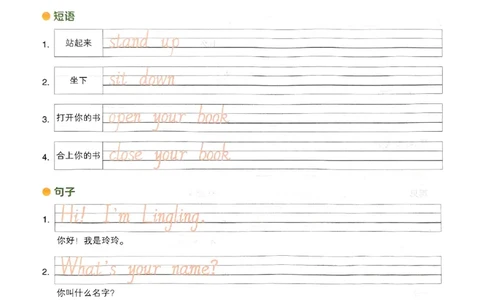 短语
1. 站起来 stand up
2. 坐下 sit down
3. 打开你的书 open your book
4. 合上你的书 close your book
句子
1. Hi! I'm Lingling.
你好！我是玲玲。
2. What's your name?
你叫什么名字？